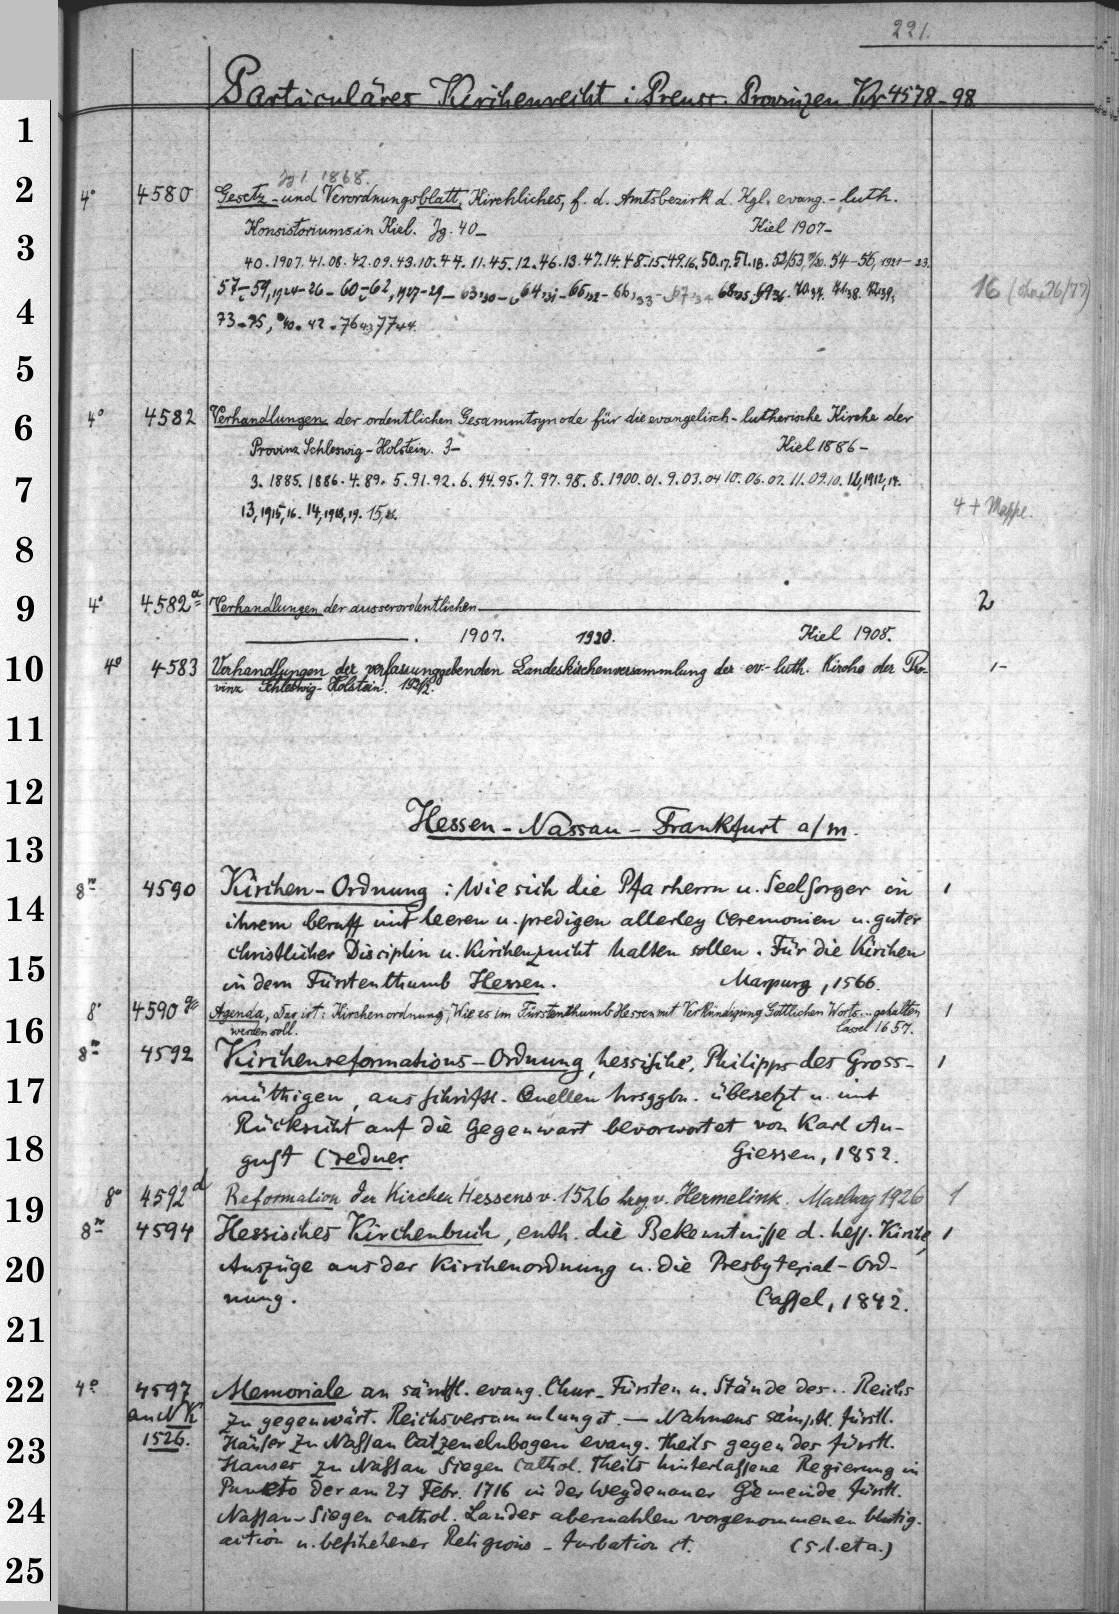 221.
Particuläres Kirchenrecht i. Preuss. Provinzen Kr 4578-98
1
Jg 1 1868.
2 4° 4580 Gesetz- und Verordnungsblatt, Kirchliches, f. d. Amtsbezirk d. Kgl. evang.-luth.
Konsistoriums in Kiel. Jg. 40- Kiel 1907-
3 40. 1907. 41. 08. 42. 09. 43. 10. 44. 11. 45. 12. 46. 13. 47. 14. 48. 15. 49. 16. 50. 17. 51. 18. 52/53, 54-56, 1921-23.
57-59, 1924-26 - 60-62, 1927-29 - 63, 30 - 64, 31 - 65, 32 - 66, 33 - 67, 34 68, 35. 69, 36. 70, 37. 71, 38. 72, 39. 16 (ohne 76/77)
4 73-75, 40. 42. 76 43 77 44.
5
6 4° 4582 Verhandlungen der ordentlichen Gesammtsynode für die evangelisch-lutherische Kirche der
Provinz Schleswig-Holstein. 3- Kiel 1886-
7 3. 1885. 1886. 4. 89. 5. 91. 92. 6. 94. 95. 7. 97. 98. 8. 1900. 01. 9. 03. 04 10. 06. 07. 11. 09. 10. 12, 1912, 14.
13, 1915, 16. 14, 1918, 19. 15, 4 + Mappe.
8
9 4° 4582a Verhandlungen der ausserordentlichen 2
. 1907. 1920. Kiel 1908.
10 4° 4583 Verhandlungen der verfassunggebenden Landeskirchenversammlung der ev.-luth. Kirche der Pro- 1-
vinz Schleswig-Holstein.
11
12
Hessen-Nassau-Frankfurt a/m.
13
14 8° 4590 Kirchen-Ordnung: Wie sich die Pfarherrn u. Seelsorger in 1
ihrem beruff mit leeren u. predigen allerley Ceremonien u. guter
15 christlicher Disciplin u. Kirchenzucht halten sollen. Für die Kirchen
in dem Fürstenthumb Hessen. Marpurg, 1566.
16 8° 4590 Agenda, Das ist: Kirchenordnung, Wie es im Fürstenthumb Hessen mit Verkündigung Göttlichen Worts... gehalten 1
werden soll. Cassel 1657.
8° 4592 Kirchenreformations-Ordnung, hessische, Philipps des Gross- 1
17 müthigen, aus schriftl. Quellen hrsggbn. übersetzt u. mit
Rücksicht auf die Gegenwart bevorwortet von Karl Au-
18 gust Credner. Giessen, 1852.
19 8° 4592d Reformation der Kirchen Hessens v. 1526 hrg v. Hermelink. Marburg 1926 1
8° 4594 Hessisches Kirchenbuch, enth. die Bekenntnisse d. hess. Kirche, 1
20 Auszüge aus der Kirchenordnung u. die Presbyterial-Ord-
nung. Cassel, 1842.
21
22 4° 4597 Memoriale an sämtl. evang. Chur-Fürsten u. Stände des.. Reichs
an NK zu gegenwärt. Reichsversammlung ct. — Nahmens sämptl. fürstl.
23 1526. Häuser zu Nassau Catzenelnbogen evang. Theils gegen des fürstl.
Hauses zu Nassau Siegen Cathol. Theils hinterlassene Regierung in
24 Puncto der am 27 Febr. 1716 in der Weydenauer Gemeinde fürstl.
Nassau-Siegen cathol. Landes abermahlen vorgenommenen blutig.
25 action u. beschehener Religions-turbation ct. (s. l. et a.)